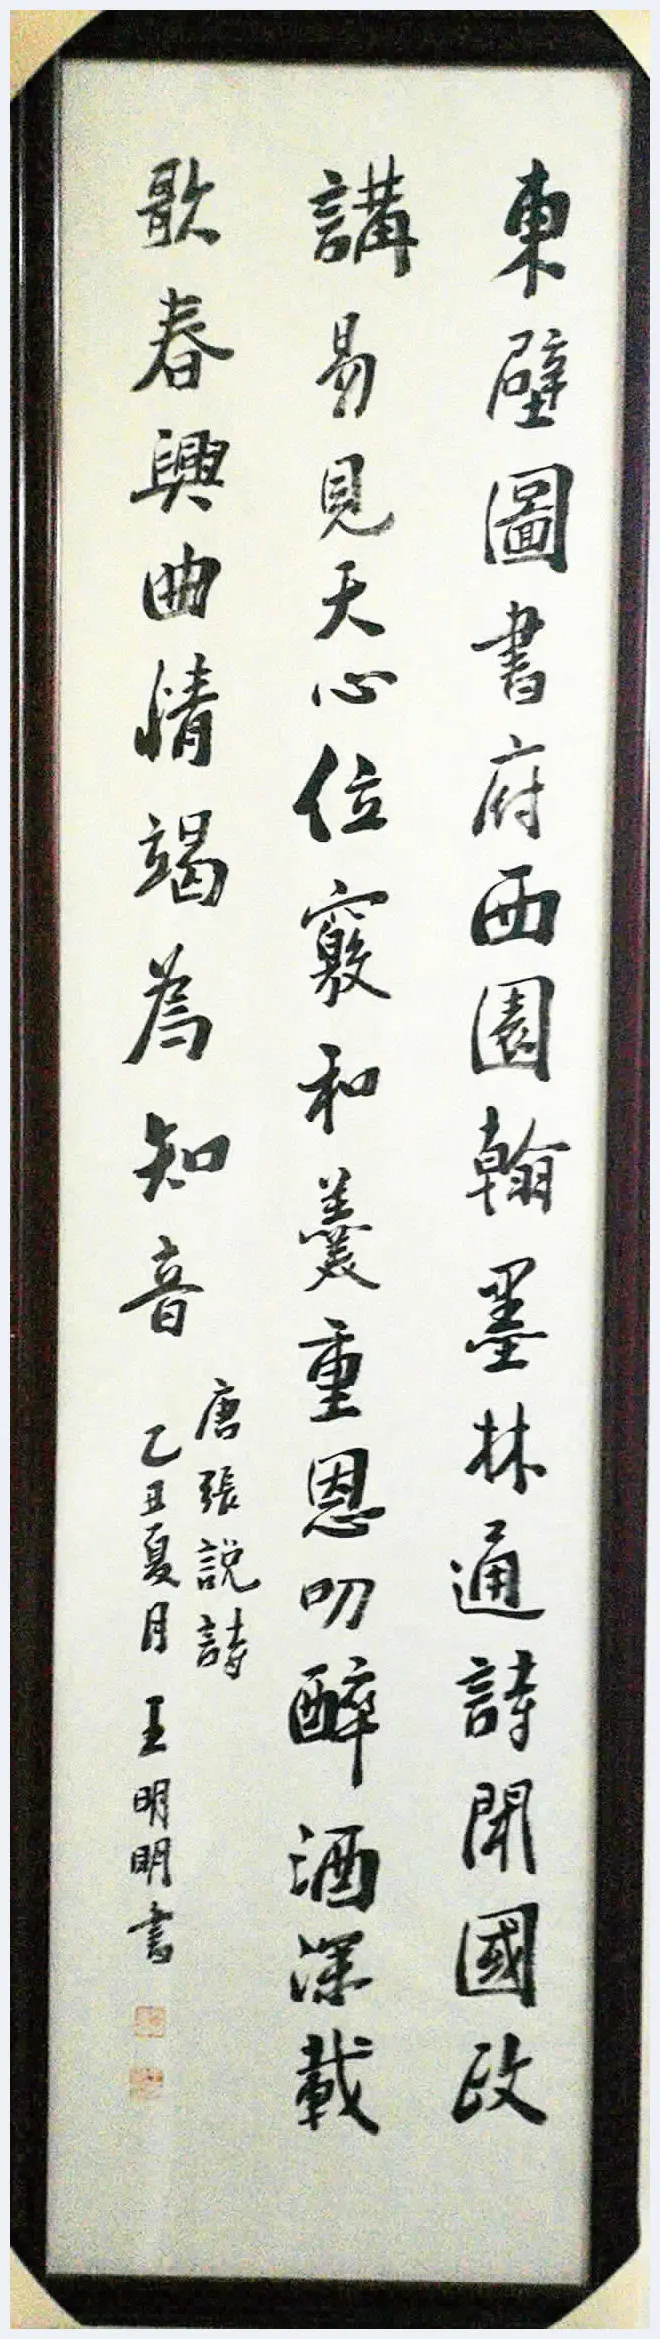 東壁圖書府西園翰墨林通詩聞國政
講易見天心位竅和羹重恩叨醉酒深載
歌春興曲情竭為知音
唐張説詩
乙丑夏月王明明書